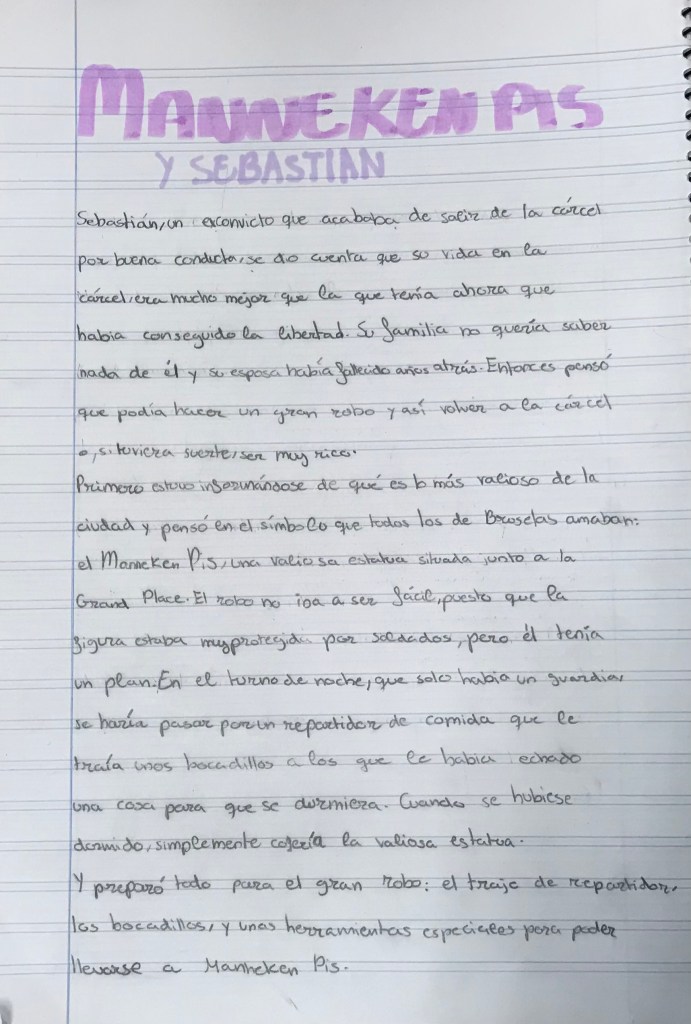 MANNEKEN PIS
Y SEBASTIAN
Sebastián, un exconvicto que acababa de salir de la cárcel
por buena conducta, se dio cuenta que su vida en la
cárcel, era mucho mejor que la que tenía ahora que
habia conseguido la libertad. Su familia no quería saber
nada de él y su esposa había fallecido años atrás. Entonces pensó
que podía hacer un gran robo y así volver a la cárcel
o, si tuviera suerte, ser muy rico.
Primero estuvo informándose de qué es lo más valioso de la
ciudad y pensó en el símbolo que todos los de Bruselas amaban:
el Manneken Pis, una valiosa estatua situada junto a la
Grand Place. El robo no iba a ser fácil, puesto que la
figura estaba muy protegida por soldados, pero él tenía
un plan. En el turno de noche, que solo habia un guardia,
se haría pasar por un repartidor de comida que le
traía unos bocadillos a los que le habia echado
una cosa para que se durmiera. Cuando se hubiese
dormido, simplemente cogería la valiosa estatua.
Y preparó todo para el gran robo: el traje de repartidor,
los bocadillos, y unas herramientas especiales para poder
llevarse a Manneken Pis.